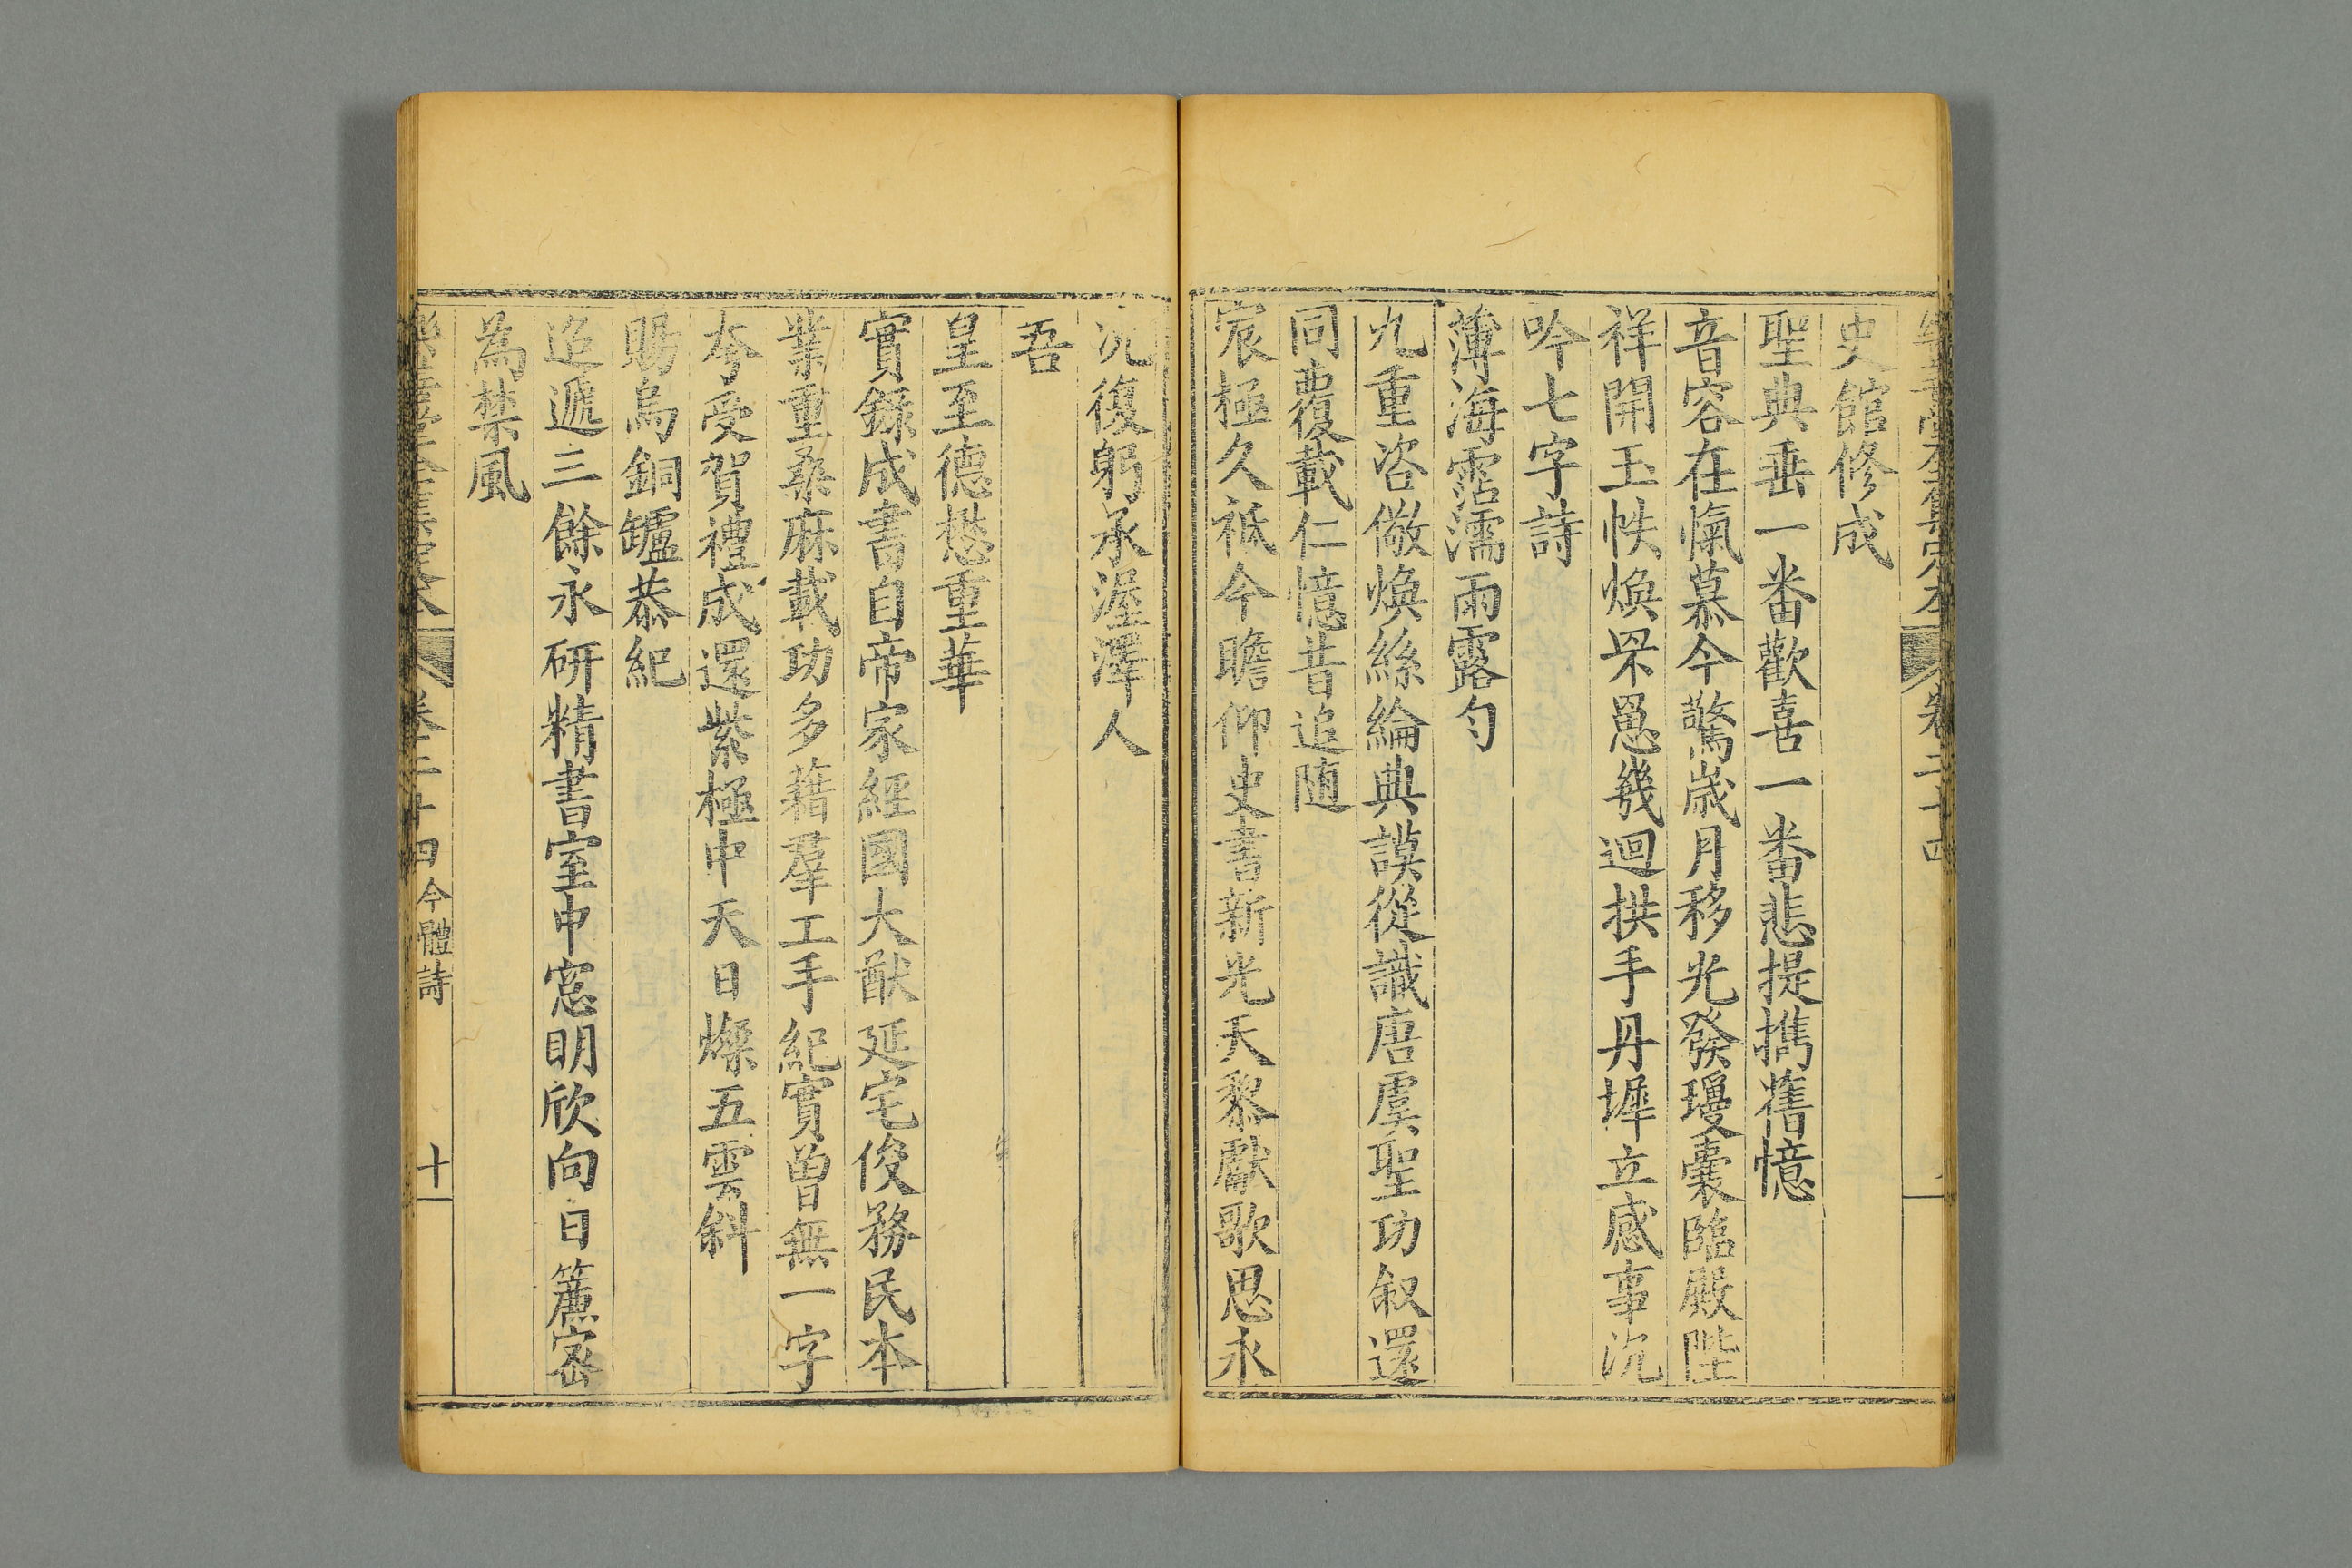 史館修成
聖典垂一番歡喜一番悲提携舊憶
音容在愾慕今驚歳月移光發瓊囊臨殿陛
祥開玉帙煥罘罳幾迴拱手丹墀立感事沉
吟七字詩
薄海霑濡雨露勻
九重咨儆煥絲綸典謨從識唐虞聖功叙還
同覆載仁憶昔追随
宸極久祗今瞻仰史書新光天黎獻歌思永
卷二十四
况復躬承渥澤人
吾
皇至德懋重華
實錄成書自帝家經國大猷延宅俊務民本
業重桑麻載功多藉羣工手紀實曽無一字
夸受賀禮成還紫極中天日燦五雲斜
賜烏銅鑪恭紀
迢遞三餘永研精書室中窓明欣向日簾密
為禁風
樂善堂全集定本
卷二十四 今體詩
十